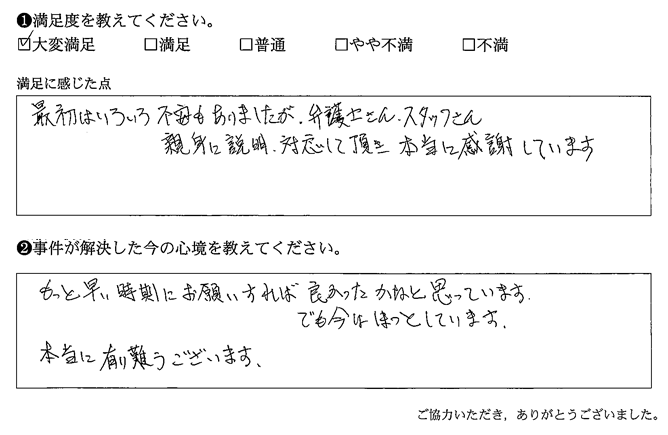 ❶満足度を教えてください。
☑大変満足 □満足 □普通 □やや不満 □不満
満足に感じた点
最初はいろいろ不安もありましたが、弁護士さん、スタッフさん
親身に説明、対応して頂き本当に感謝しています
❷事件が解決した今の心境を教えてください。
もっと早い時期にお願いすれば良かったかなと思っています。
でも今はほっとしています。
本当に有り難うございます。
ご協力いただき，ありがとうございました。